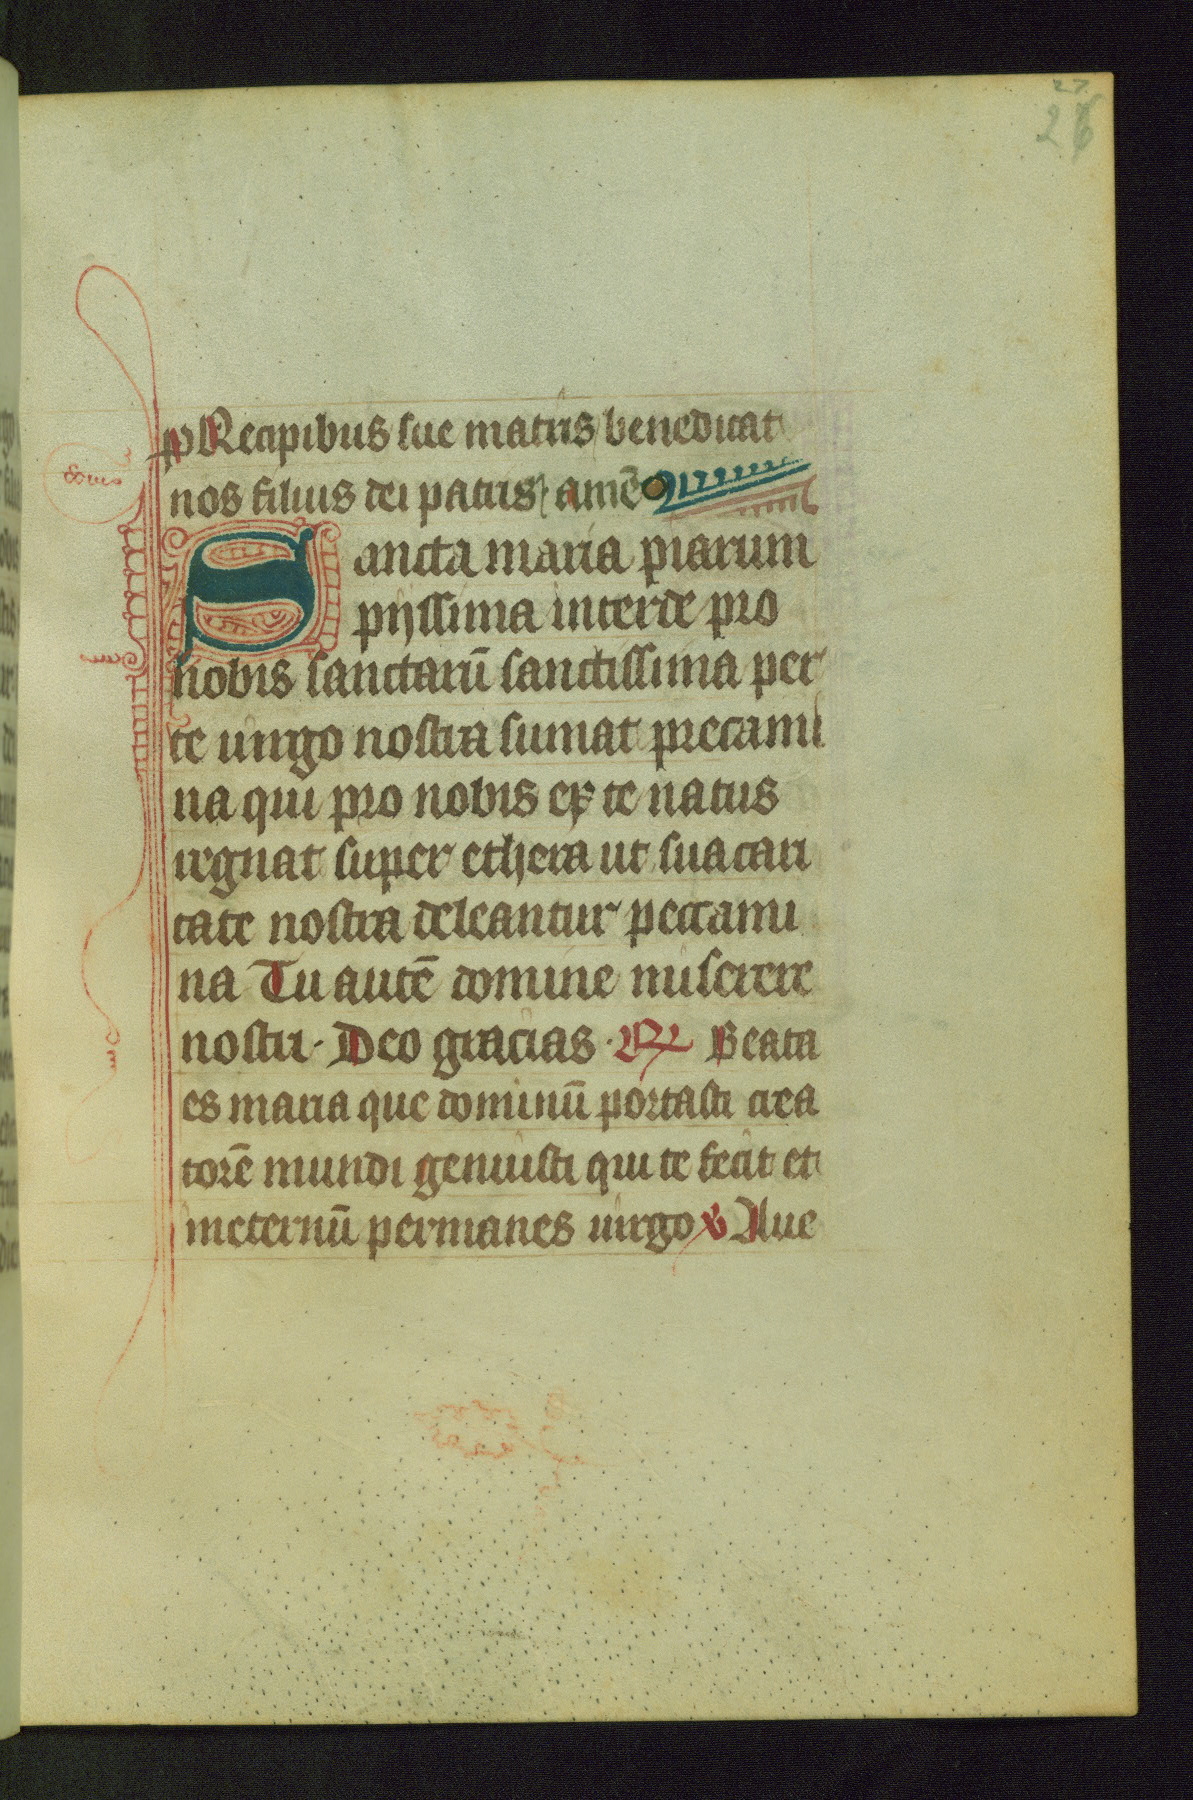 27
26
pRecipibus sue matris benedicat
nos filius dei patris amē
domus
Sancta maria piarum
pijssima intercde pro
nobis sanctarū sanctissima per
te uirgo nostra sumat precami
na qui pro nobis ex te natus
regnat super ethera ut sua cari
tate nostra deleantur peccami
na Tu autē domine miserere
nostri · Deo gracias · R Beata
es maria que dominū portasti crea
torē mundi genuisti qui te fecit et
ineternū permanes uirgo v Aue